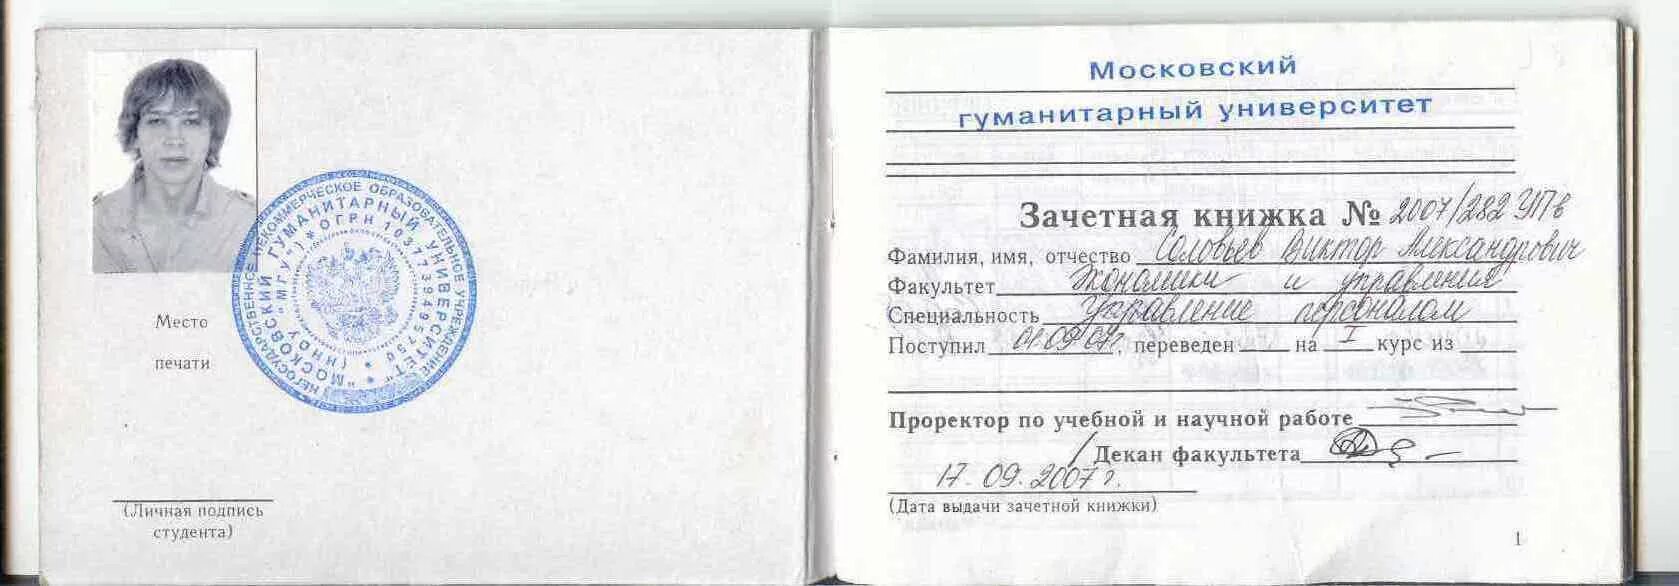 Место
печати
НЕГОСУДАРСТВЕННОЕ НЕКОММЕРЧЕСКОЕ ОБРАЗОВАТЕЛЬНОЕ УЧРЕЖДЕНИЕ
"МОСКОВСКИЙ ГУМАНИТАРНЫЙ УНИВЕРСИТЕТ"
(ННОУ "МГУ") * ОГРН 1037739495750 *
(Личная подпись
студента)
Московский
гуманитарный университет
Зачетная книжка № 2007/282 УПв
Фамилия, имя, отчество Соловьев Виктор Александрович
Факультет Экономики и управления
Специальность Управление персоналом
Поступил 01.09.07г, переведен на I курс из
Проректор по учебной и научной работе
Декан факультета
17.09.2007г.
(Дата выдачи зачетной книжки)
1